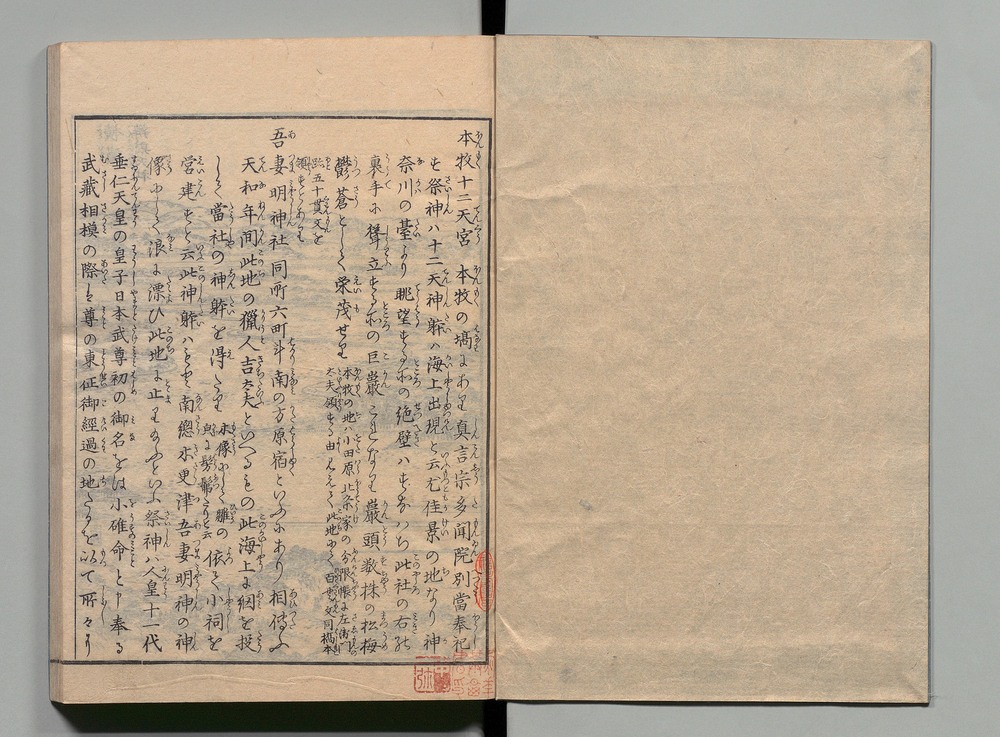 本牧十二天宮 本牧の塙にあり真言宗多聞院別當奉祀
す祭神ハ十二天神躰ハ海上出現と云尤佳景の地なり神
奈川の臺より眺望する所の絶壁ハすなハち此社の右の
裏手に聳立する所の巨巖これなり巖頭数株の松梅
鬱蒼として栄茂せり
本牧の地ハ小田原北条家の分限帳に左衛門
太夫領する由みえて此地にて百廿貫文同橋本
五十貫文を
領すとあり
吾妻明神社 同所六町斗南の方原宿といふにあり相傳ふ
天和年間此地の獵人吉太夫といへるもの此海上に網を投
して當社の神躰を得たり
木像にして雛の
依て小祠を
営建すと云此神躰ハもと南總木更津吾妻明神の神
像にして浪に漂ひ此地に止り給ふといふ祭神ハ人皇十二代
垂仁天皇の皇子日本武尊初の御名をは小碓命と申奉る
武蔵相模の際は尊の東征御經過の地たるを以て所々に